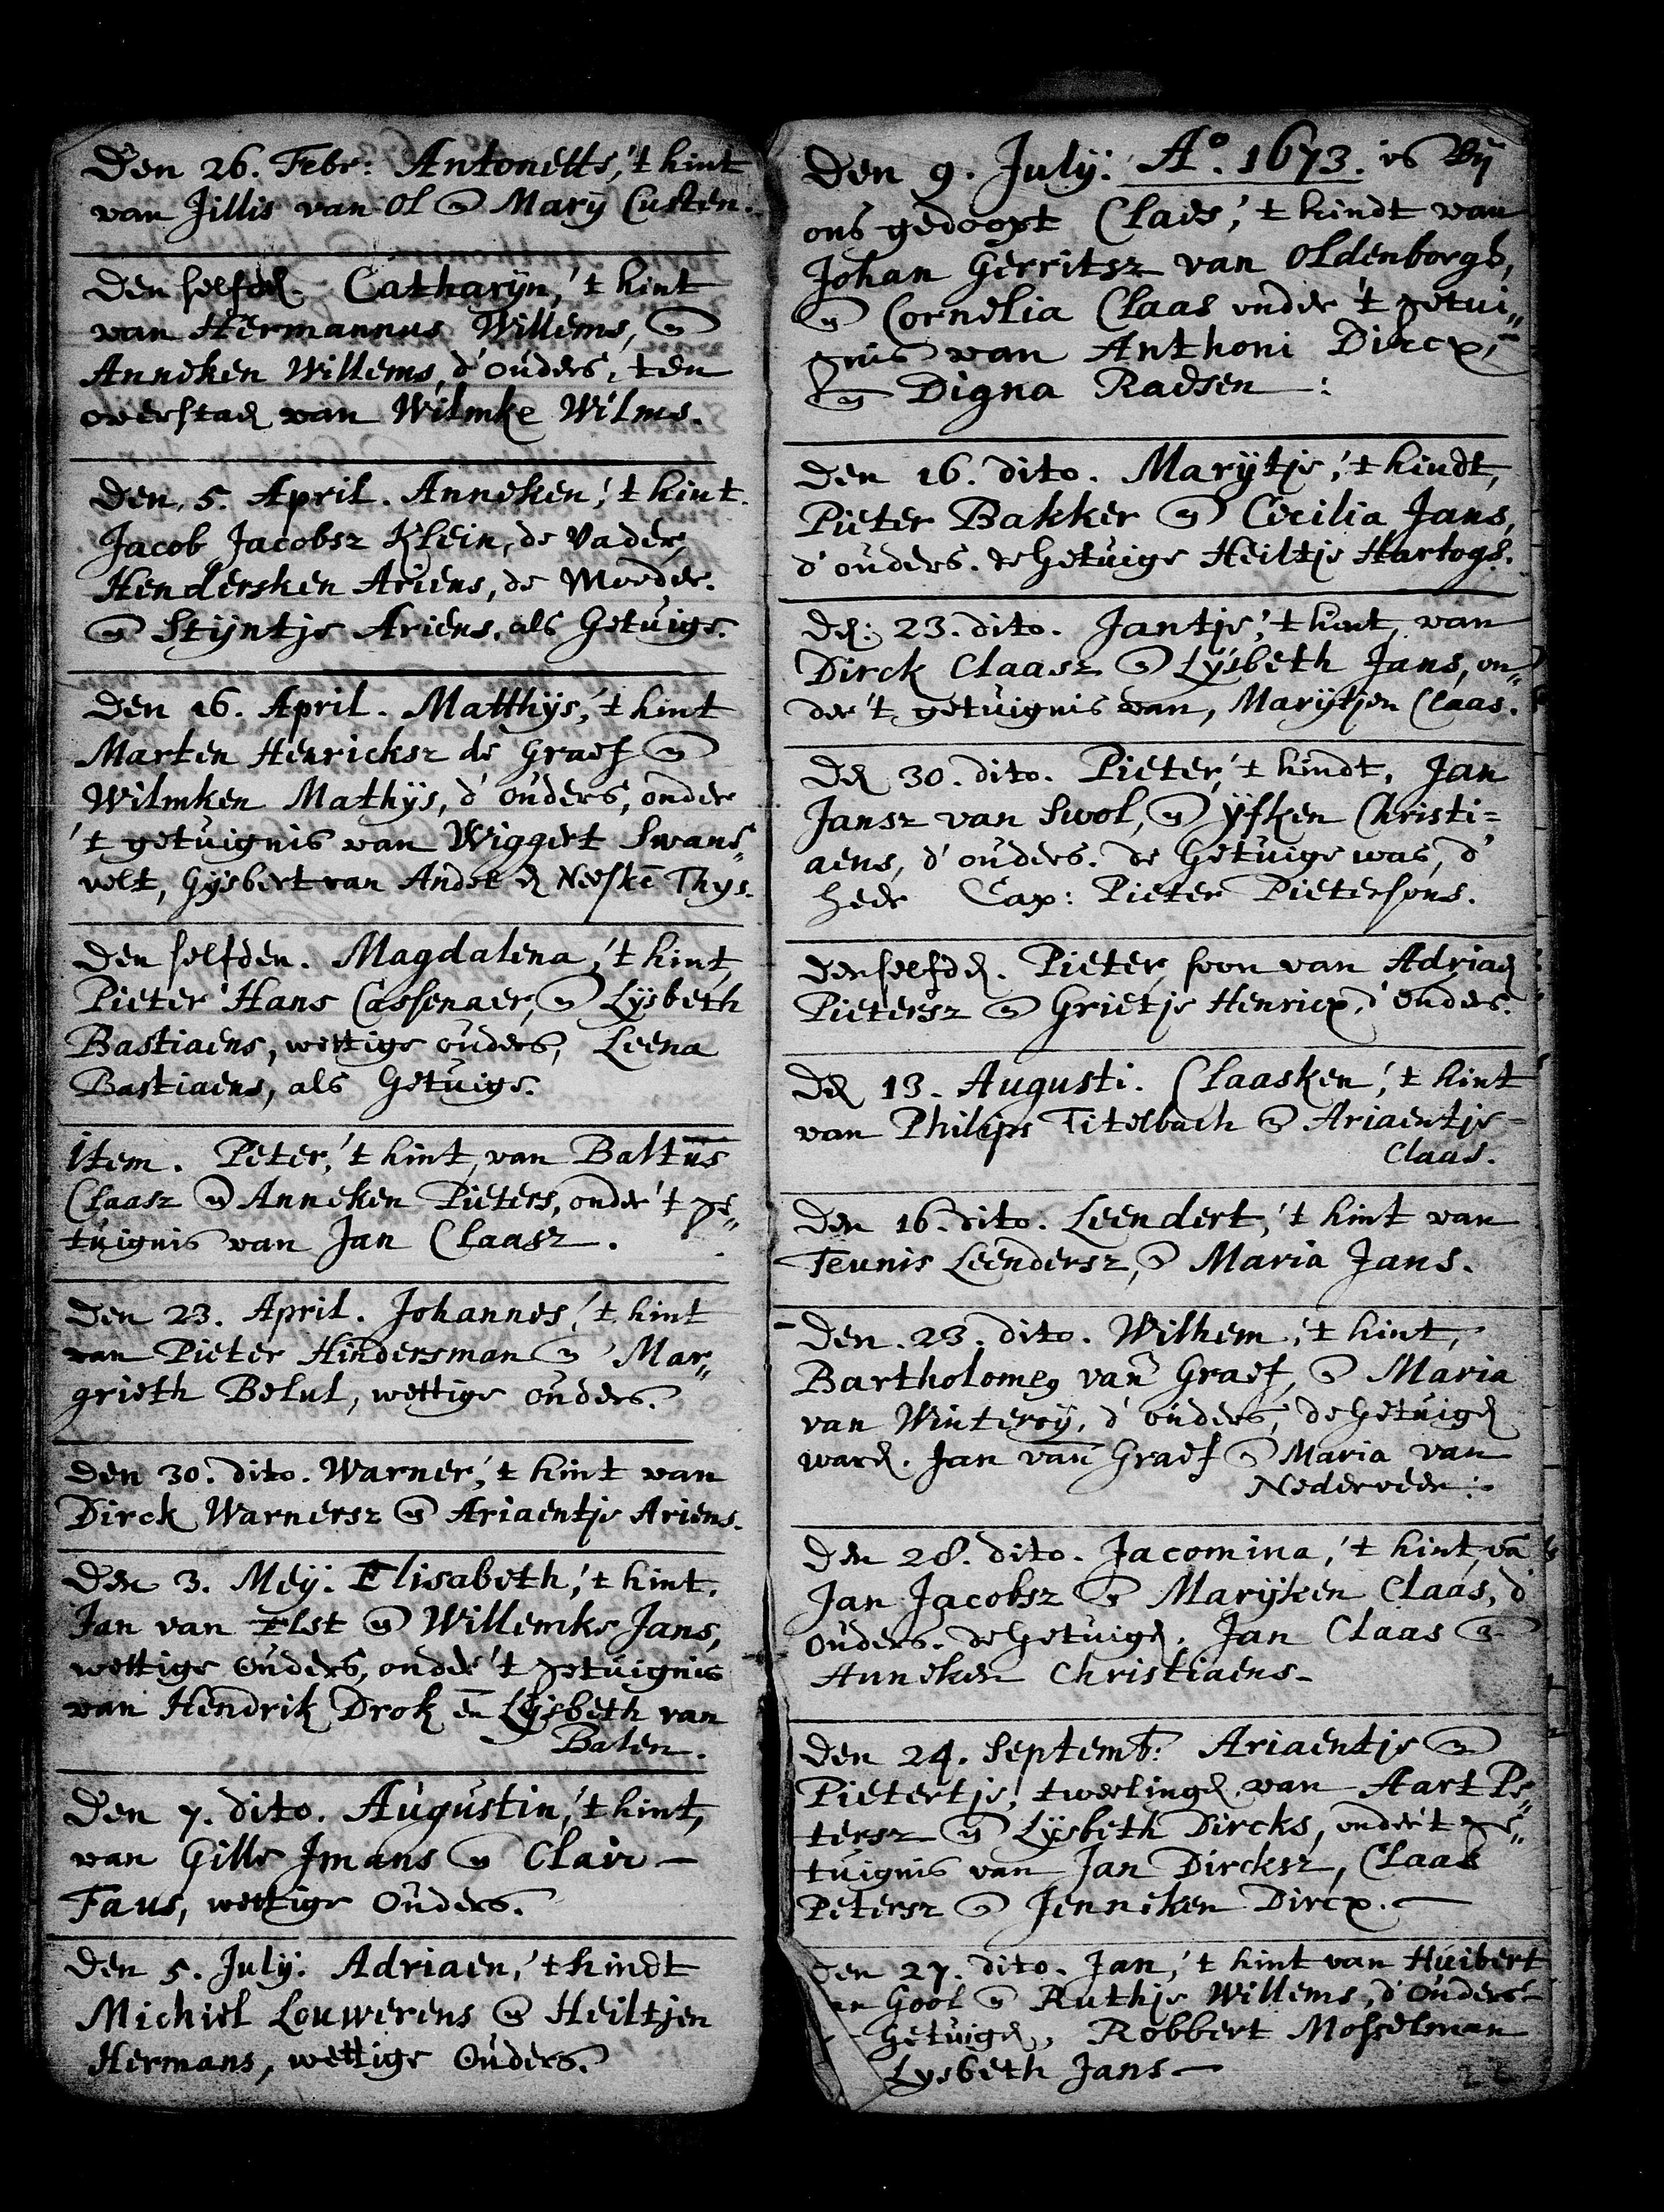 Den 26. Febr: Antonette, 't kint
van Jillis van Ol en Mary Custen.
Den selfden. Catharyn, 't kint
van Hermannus Willems, en
Anneken Willems, d'ouders, ten
overstaen van Wilmke Wilms.
Den 5. April. Anneken, 't kint.
Jacob Jacobsz Klein, de Vader,
Hendersken Ariens, de Moeder.
en Stijntje Ariens, als Getuige.
Den 16. April. Matthys, 't kint
Marten Henricksz de Graef en
Wilmken Mathys, d'ouders, onder
't getuignis van Wiggert Swans„
velt, Gysbert van Andel en Neeske Thys.
Den selfden. Magdalena, 't kint,
Pieter Hans Cassenaer, en Lysbeth
Bastiaens, wettige ouders, Leena
Bastiaens, als Getuige.
Item. Peter, 't kint, van Baltus
Claasz en Anneken Pieters, onder 't ge„
tuignis van Jan Claasz.
Den 23. April. Johannes, 't kint
van Pieter Hindersman en Mar„
grieth Belul, wettige ouders.
Den 30. dito. Warner, 't kint van
Dirck Warnersz en Ariaentje Ariens.
Den 3. Mey. Elisabeth, 't kint.
Jan van Elst en Willemke Jans,
wettige Ouders, onder 't getuignis
van Hendrik Drok en Lysbeth van
Balen.
Den 7. dito. Augustin, 't kint,
van Gille Jmans en Clair –
Faus, wettige Ouders.
Den 5. July. Adriaen, 't kindt
Michiel Louwerens en Heiltjen
Hermans, wettige Ouders.
Den 9. July. Aº. 1673. is By
ons gedoopt Claes, 't kindt van
Johan Gerritsz van Oldenborgh,
en Cornelia Claas onder 't getui„
gnis van Anthoni Dircx,
en Digna Raesen:
Den 16. dito. Marijtje, 't kindt,
Pieter Bakker en Cecilia Jans,
d'ouders. de Getuige Heiltje Hartogs.
Den: 23. dito. Jantje, 't kint, van
Dirck Claasz en Lysbeth Jans, on„
der 't getuignis van, Marijtjen Claas.
Den 30. dito. Pieter, 't kindt, Jan
Jansz van Swol, en Yfken Christi=
aens, d'ouders. de Getuige was, d'
heer Cap: Pieter Pietersons.
Den selfden. Pieter, soon van Adriaen
Pietersz en Grietje Henricx, d'ouders.
Den 13. Augusti. Claasken, 't kint
van Philips Titelbach en Ariaentje
Claas.
Den 16. dito. Leendert, 't kint van
Teunis Leendersz, en Maria Jans.
Den. 23. dito. Wilhem, 't kint,
Bartholomeus van Graef, en Maria
van Winteroy, d'ouders, de Getuigen
waren. Jan van Graef en Maria van
Nederveen:
Den 28. dito. Jacomina, 't kint, van
Jan Jacobsz en Marijken Claas, d'
ouders. de Getuigen, Jan Claas en
Anneken Christiaens.
Den 24. Septemb: Ariaentje en
Pietertje, tweelingen van Aart Pe„
tersz en Lysbeth Dircks, onder 't ge„
tuignis van Jan Dircksz, Claas
Petersz en Jenneken Dircx.
Den 27. dito. Jan, 't kint van Huibert
an Gool en Ruthje Willems, d'Ouders
Getuigen, Robbert Mosselman
Lysbeth Jans